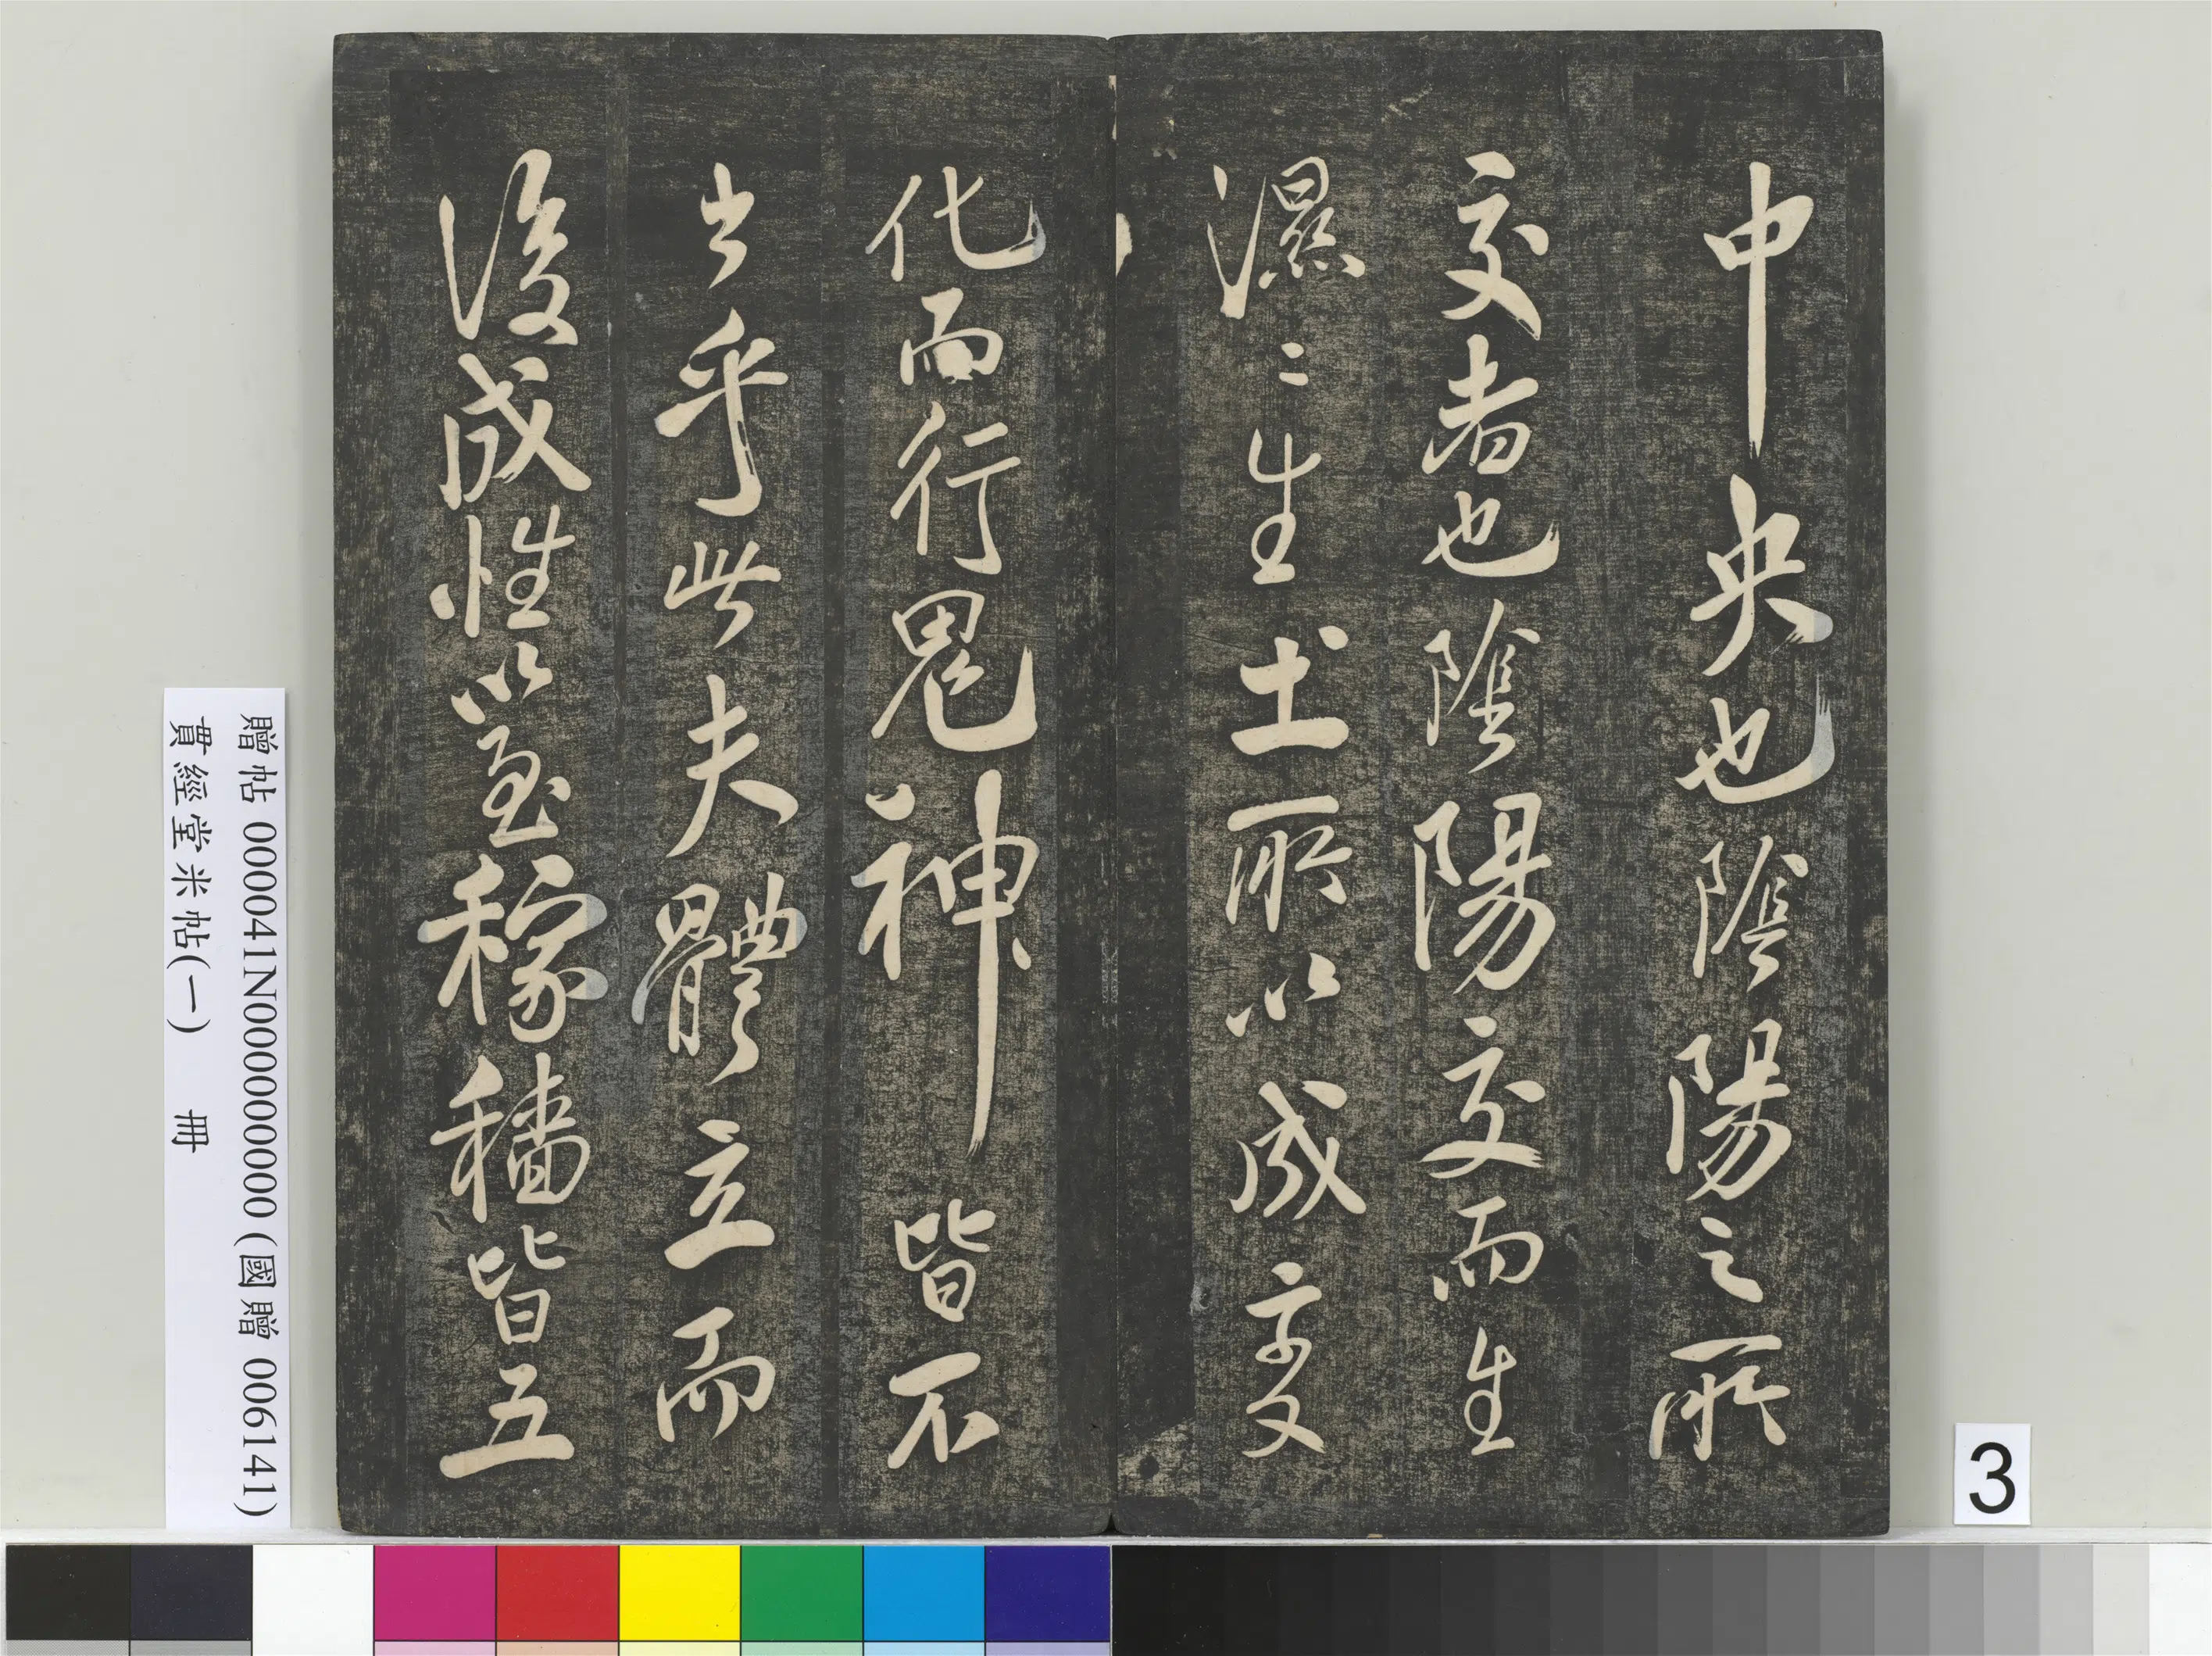 中央也陰陽之所
交者也陰陽交而生
濕〻生土所以成變
化而行鬼神皆不
出乎此夫體立而
後成性以至稼穡皆五
贈帖 000041N000000000 (國贈 006141)
貫經堂米帖(一) 冊
3